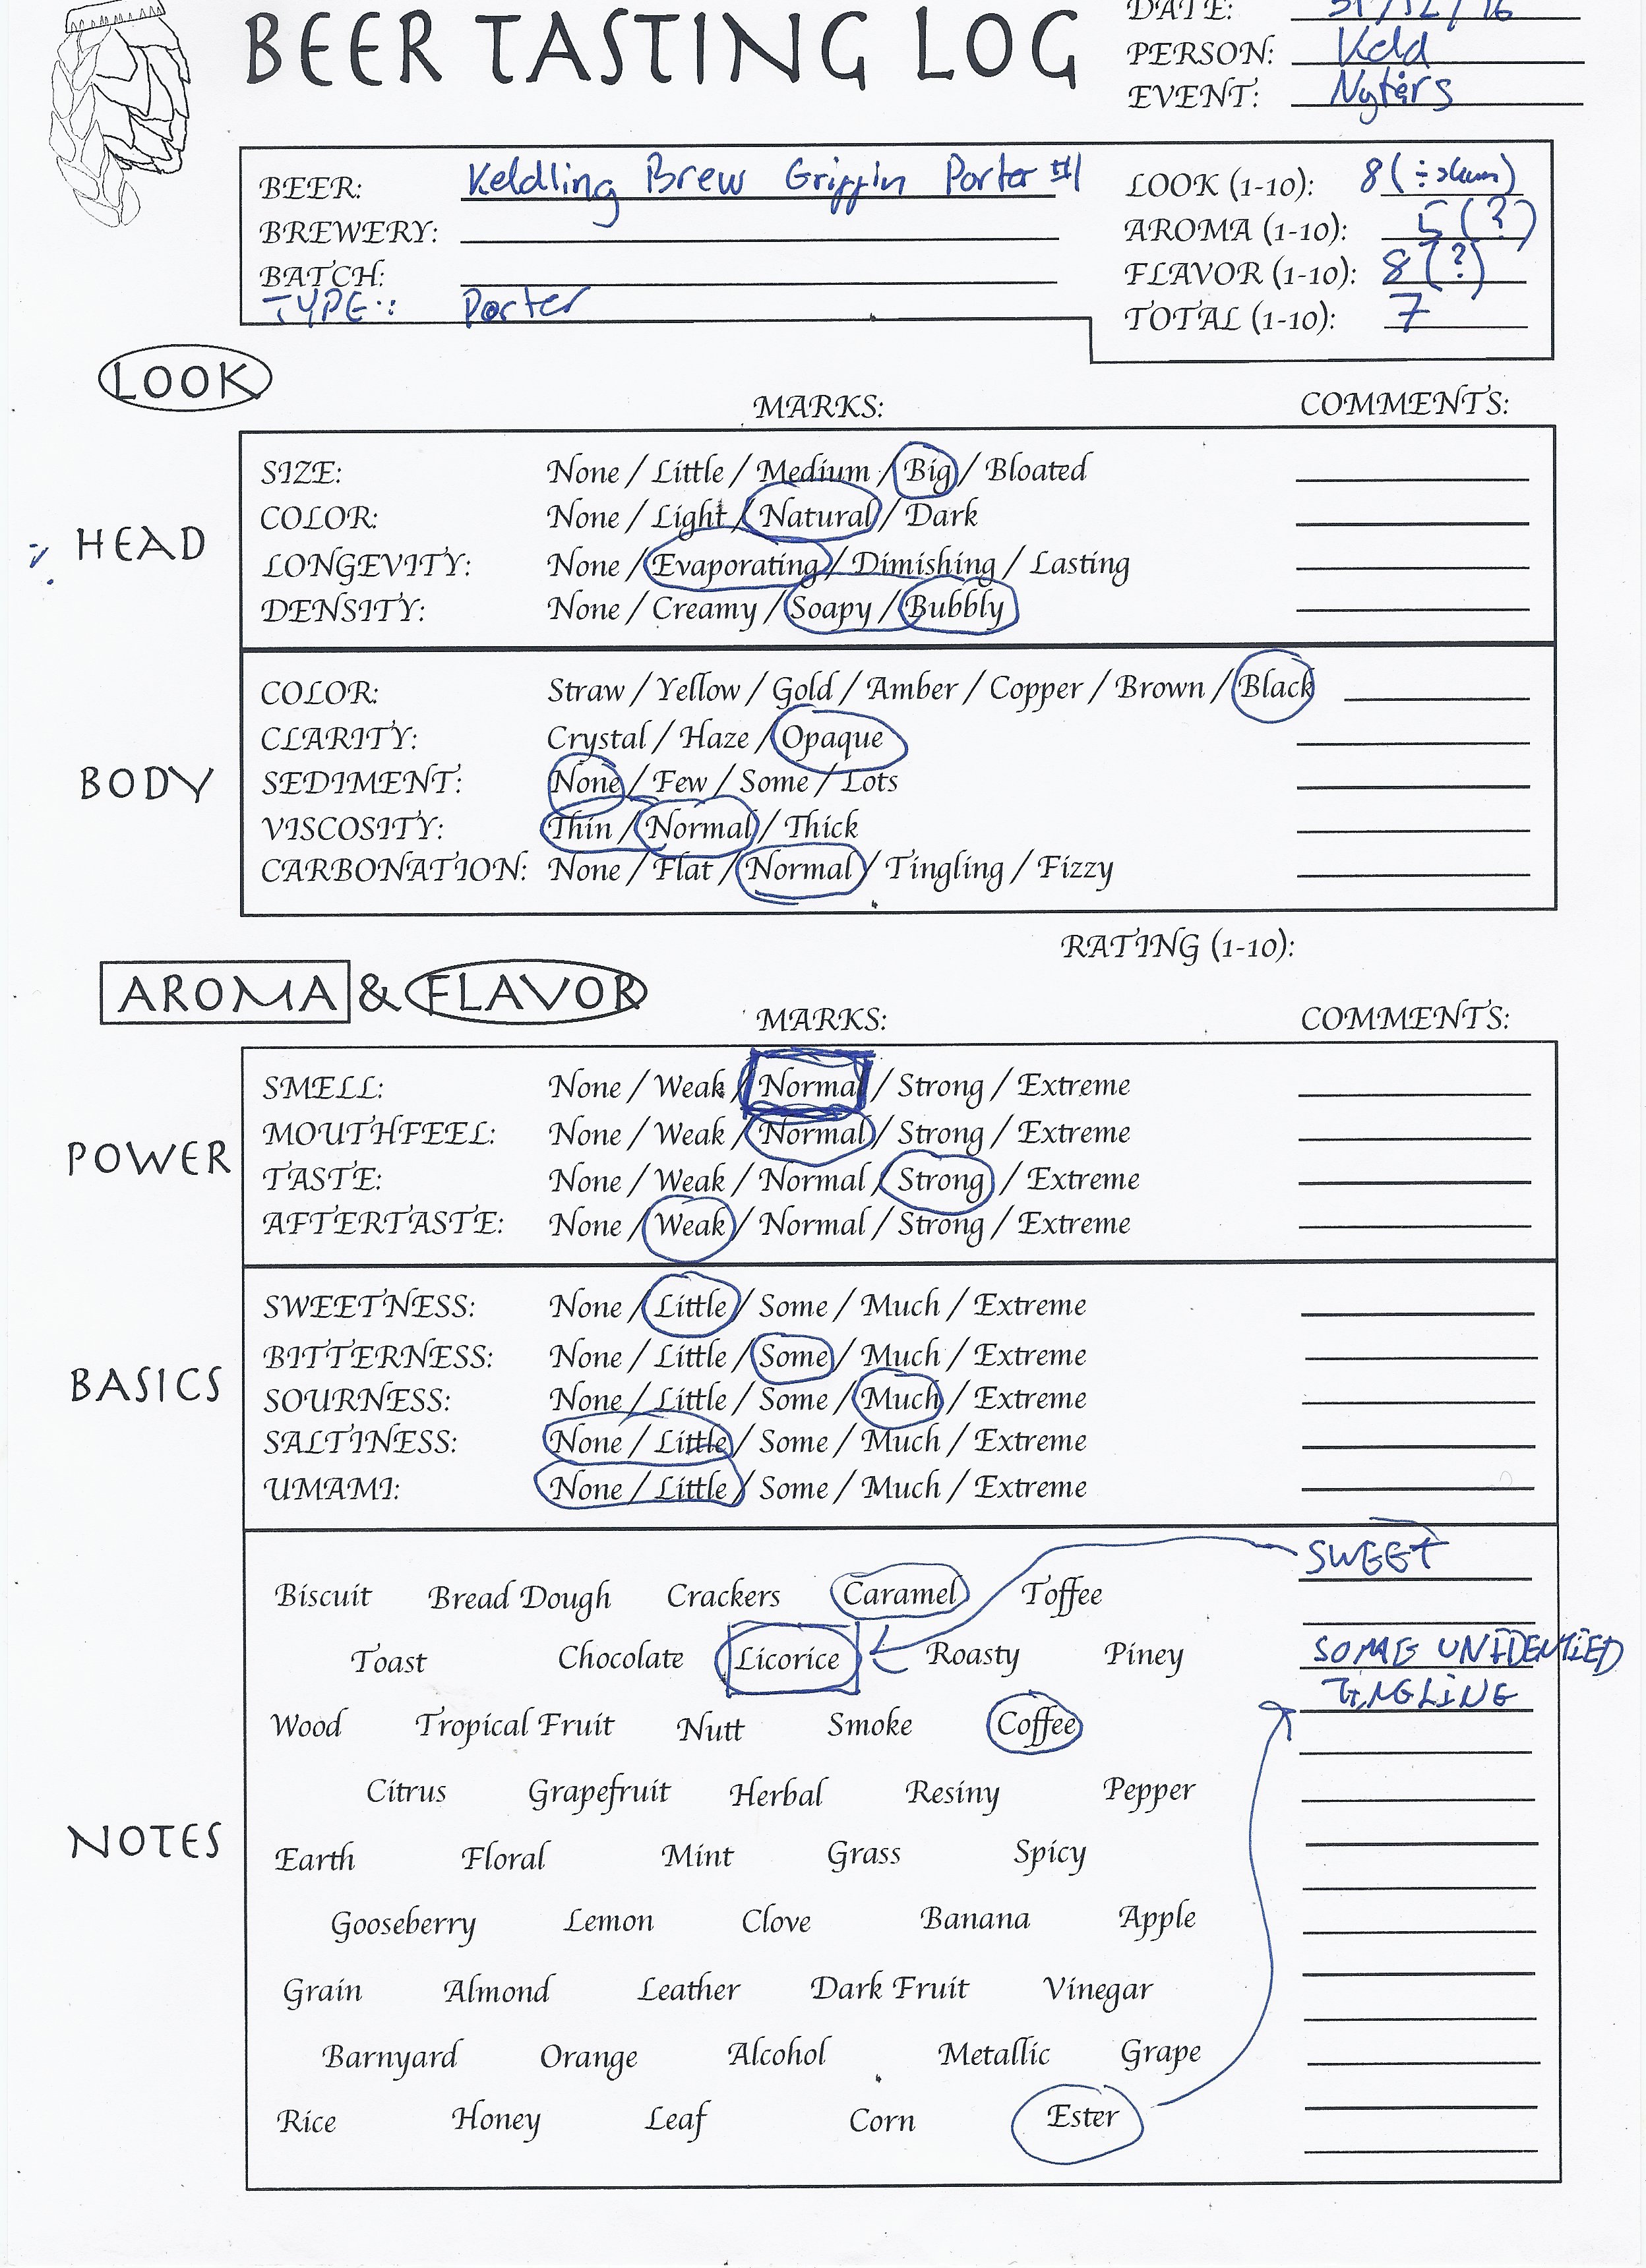 BEER TASTING LOG
DATE: 31/12/16
PERSON: Keld
EVENT: Nytårs
BEER: Keldling Brew Griffin Porter #1
BREWERY:
BATCH:
TYPE: Porter
LOOK (1-10): 8 (÷skum)
AROMA (1-10): 5 (?)
FLAVOR (1-10): 8 (?)
TOTAL (1-10): 7
LOOK
MARKS: COMMENTS:
HEAD
SIZE: None / Little / Medium / Big / Bloated
COLOR: None / Light / Natural / Dark
LONGEVITY: None / Evaporating / Dimishing / Lasting
DENSITY: None / Creamy / Soapy / Bubbly
BODY
COLOR: Straw / Yellow / Gold / Amber / Copper / Brown / Black
CLARITY: Crystal / Haze / Opaque
SEDIMENT: None / Few / Some / Lots
VISCOSITY: Thin / Normal / Thick
CARBONATION: None / Flat / Normal / Tingling / Fizzy
RATING (1-10):
AROMA & FLAVOR
MARKS: COMMENTS:
POWER
SMELL: None / Weak / Normal / Strong / Extreme
MOUTHFEEL: None / Weak / Normal / Strong / Extreme
TASTE: None / Weak / Normal / Strong / Extreme
AFTERTASTE: None / Weak / Normal / Strong / Extreme
BASICS
SWEETNESS: None / Little / Some / Much / Extreme
BITTERNESS: None / Little / Some / Much / Extreme
SOURNESS: None / Little / Some / Much / Extreme
SALTINESS: None / Little / Some / Much / Extreme
UMAMI: None / Little / Some / Much / Extreme
NOTES
SWEET
Biscuit Bread Dough Crackers Caramel Toffee
Toast Chocolate Licorice Roasty Piney
SOME UNIDENTIED
TINGLING
Wood Tropical Fruit Nutt Smoke Coffee
Citrus Grapefruit Herbal Resiny Pepper
Earth Floral Mint Grass Spicy
Gooseberry Lemon Clove Banana Apple
Grain Almond Leather Dark Fruit Vinegar
Barnyard Orange Alcohol Metallic Grape
Rice Honey Leaf Corn Ester